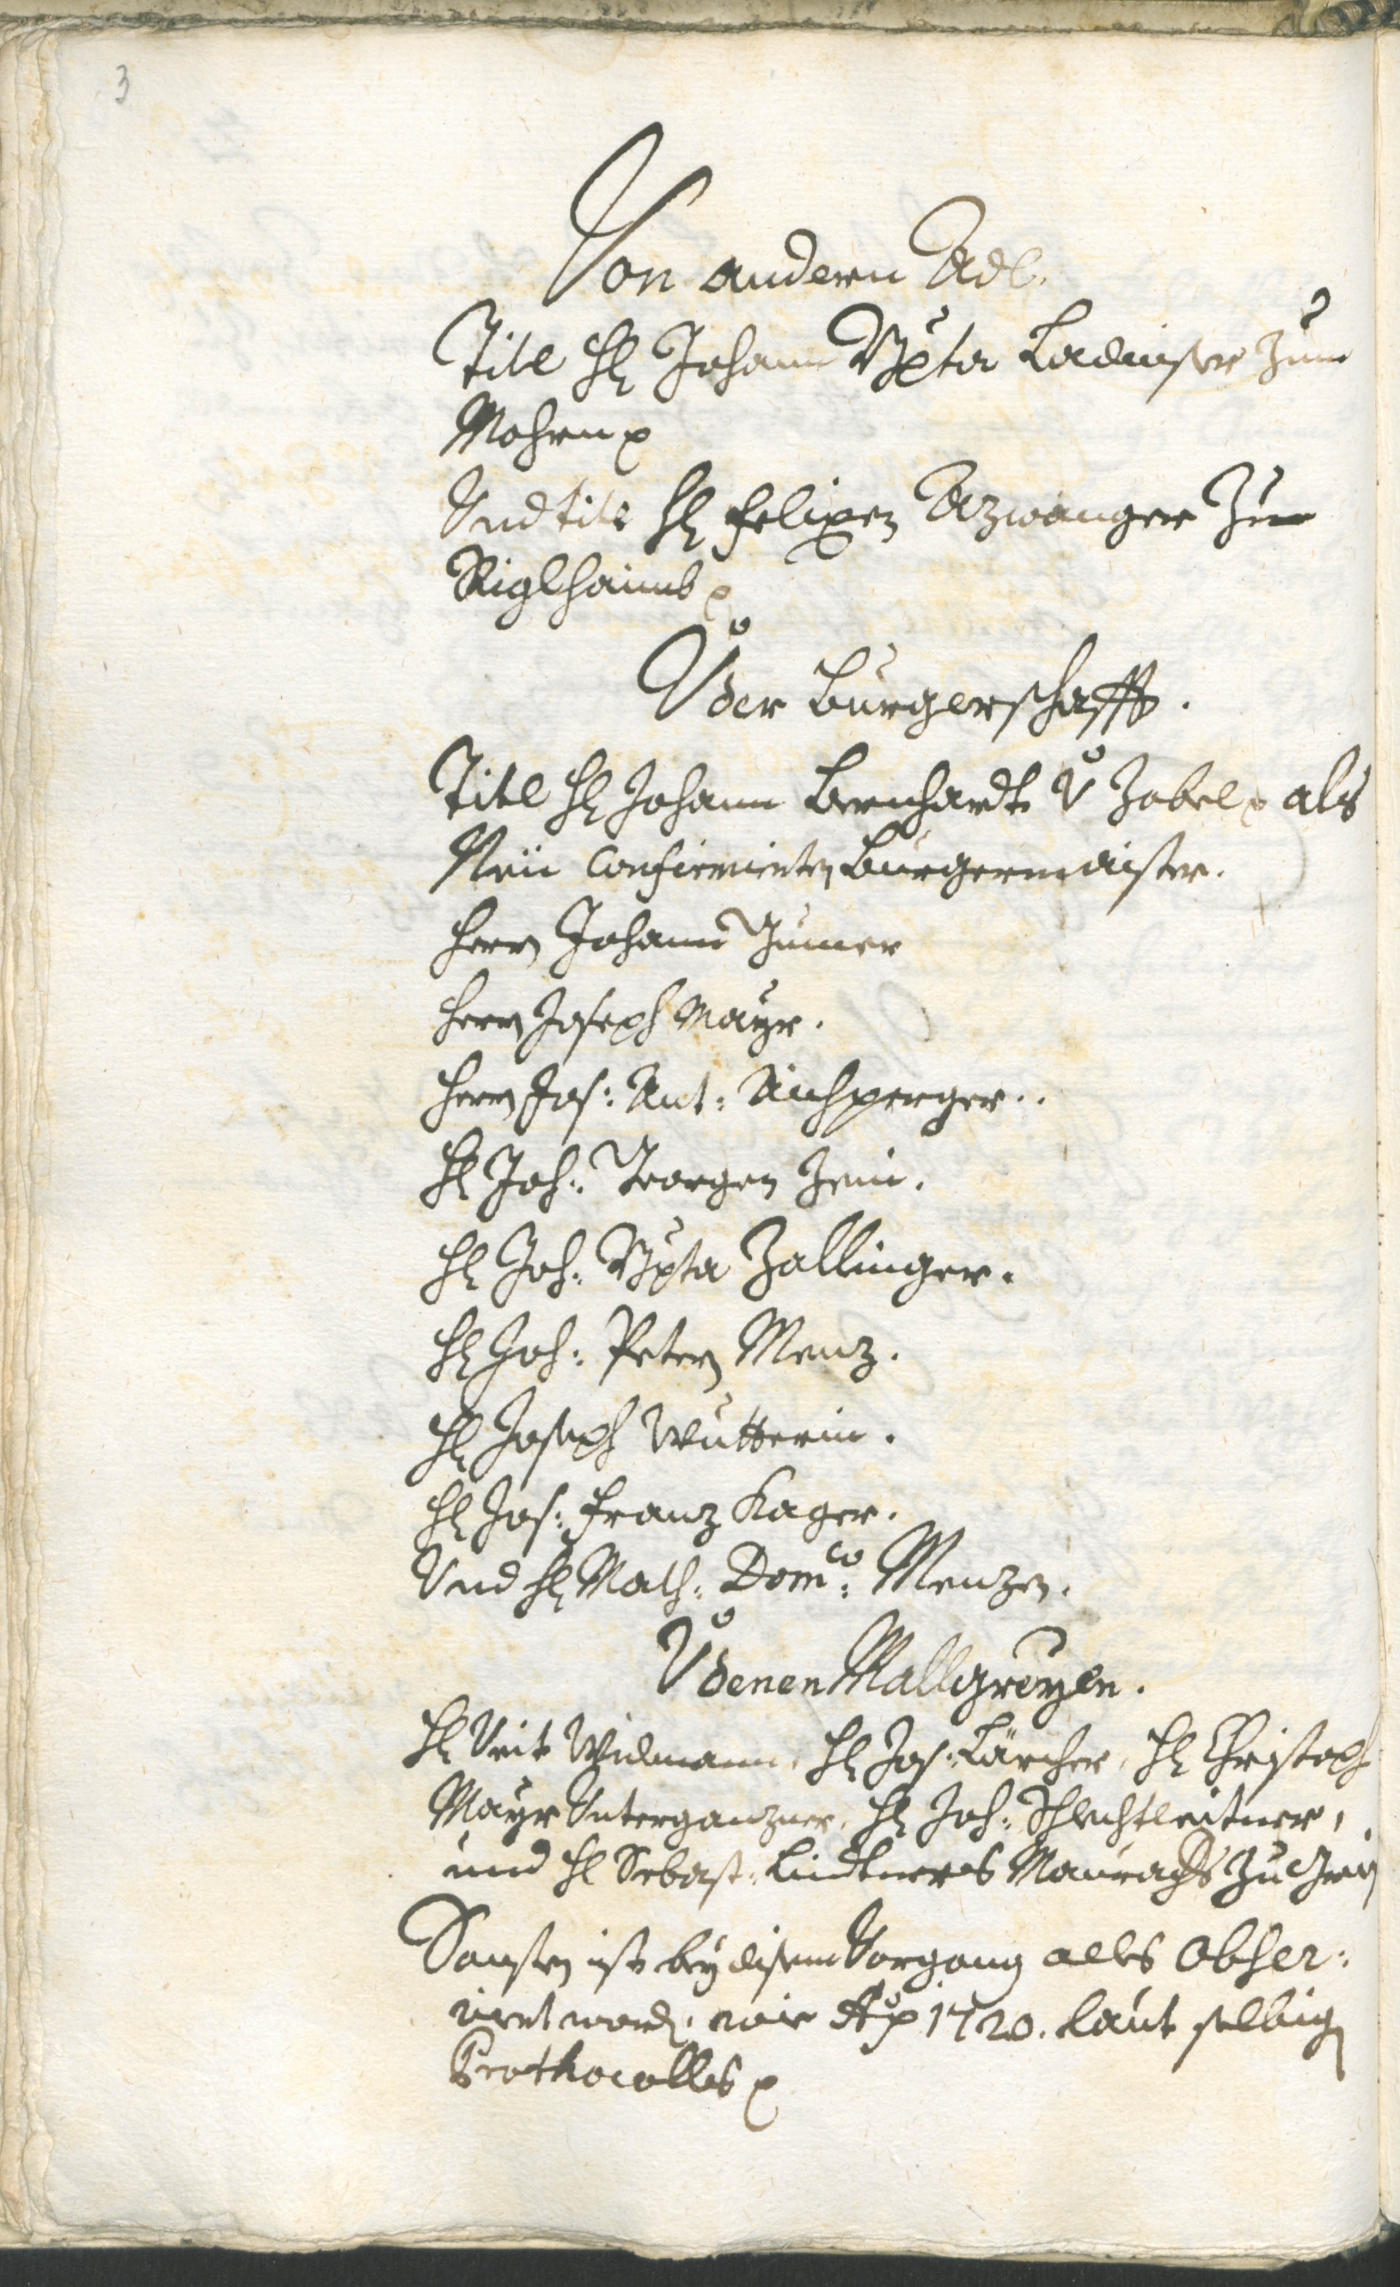 3
Von andern Adl.
Titl H Johann Bpta Ladurner zum
Mohren p
Und titl H Felixen Azwanger Zu
Riglhaimb p
V der Burgerschafft.
Titl H Johann Bernhardt V Zobel p als
Neü Confirmirten Burgermaister.
Herrn Johann Gumer
Herrn Joseph Mayr.
Herrn Jos: Ant: Aichperger.
H Joh: Georgen Zeni.
H Joh: Bpta Zallinger.
H Joh: Petern Menz.
H Joseph Wutterin.
H Jos: Franz Kager.
Und H Math: Domco: Menzen.
V denen Mallgreyen.
H Veit Widmann, H Jos: Lärcher, H Christoph
Mayr Unterganzner, H Joh: Schlechtleitner,
und H Sebast: Lindtners Maurachs zu
Sonsten ist bey disem Vorgang alles obser:
virt word. wie Ao 1720. laut selbig
Prothocolles p